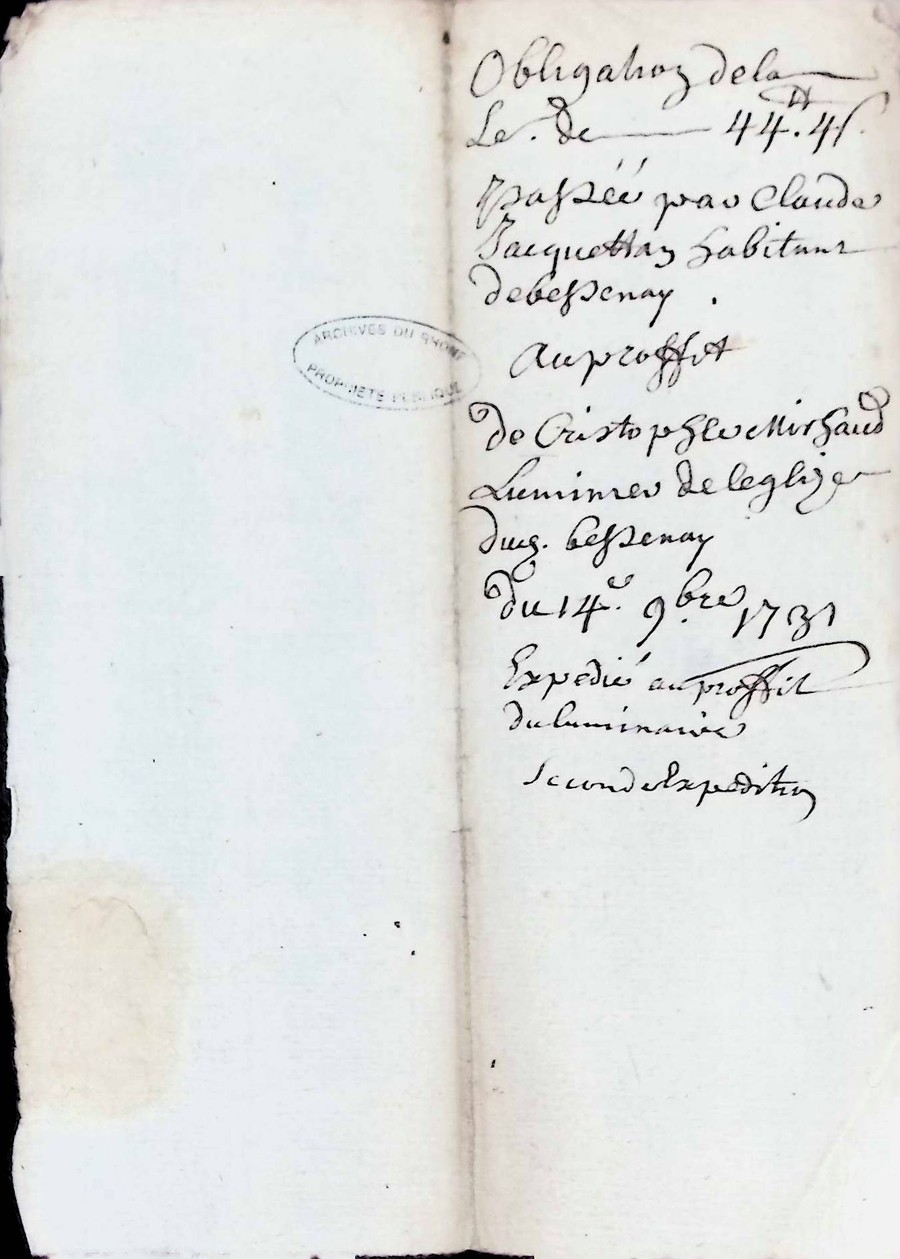 Obligation de la
Se. de 44.₶ 4 s.
passéé par Claude
Jacquettan habitant
de bessenay.
Au proffit
de Cristophle Michaud
Luminier de leglize
dud. bessenay
du 14.e 9.bre 1731
Expedié au proffit
du luminaire
Seconde Expedition
ARCHIVES DU RHONE
PROPRIETE PUBLIQUE